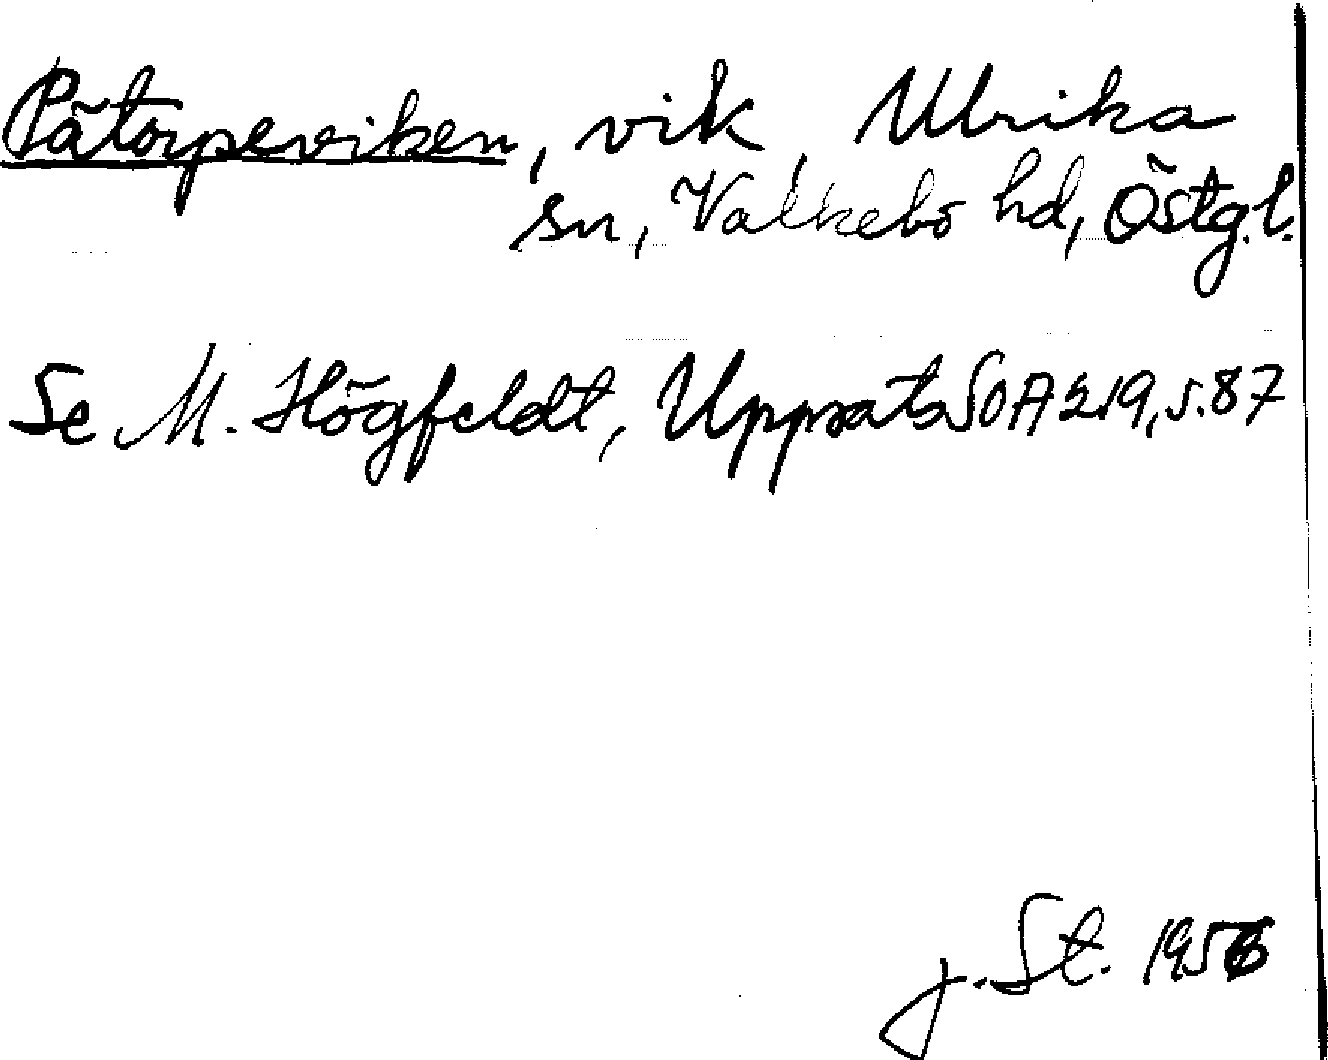 Pätorpeviken, vik, Ulrika
sn, Valkebo hd, Östg.l.
Se M. Högfeldt, Uppsats SOA 219, s. 87
J. St. 1956